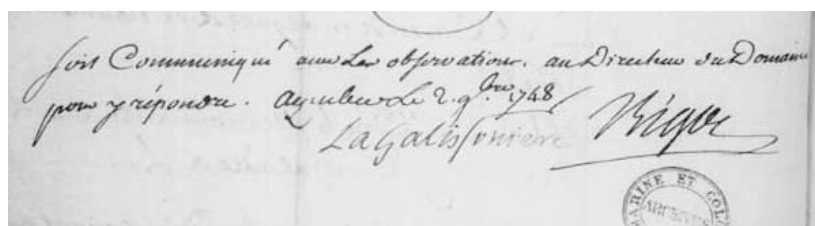 soit Communiqué avec Les observations. au Directeur du Domaine
pour y répondre. a quebec Le 2. 9.bre 1748
La Galissoniere Bigot
MARINE ET COL
ARCHIVES